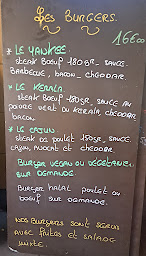 Les Burgers.
16€00
* LE YANKEE
STEAK BOEUF 180GR, SAUCE
BARBECUE, BACON, CHEDDAR
* LE KERALA
STEAK BOEUF 180GR, SAUCE AU
POIVRE VERT OU KERALA, CHEDDAR
BACON
* LE CAJUN
STEAK DE POULET 150GR, SAUCE
CAJUN, AVOCAT ET CHEDDAR.
BURGER VEGAN OU VÉGÉTARIEN
SUR DEMANDE.
BURGER HALAL POULET OU
BOEUF SUR DEMANDE.
NOS BURGERS SONT SERVIS
AVEC FRITES ET SALADE